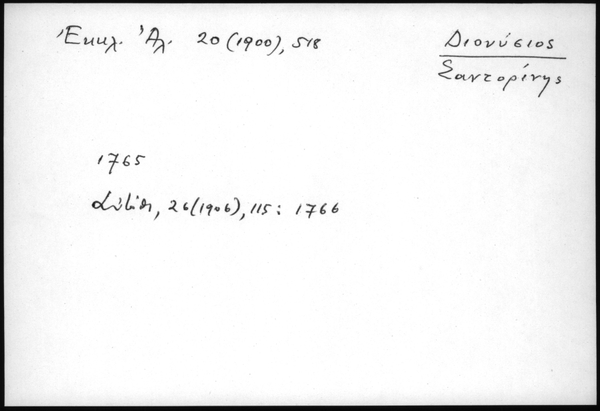 Ἐκκλ. Ἀλ. 20 (1900), 518
Διονύσιος
Σαντορίνης
1765
26 (1906), 115: 1766